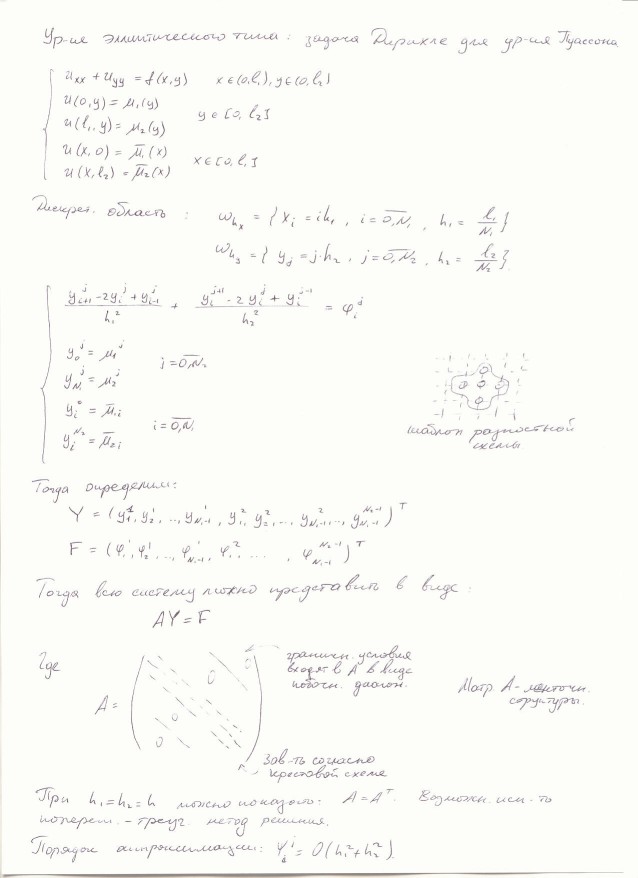 Ур-ие эллиптического типа: задача Дирихле для ур-ия Пуассона
u_xx + u_yy = f(x,y)   x∈(0,l₁), y∈(0,l₂)
u(0,y) = μ₁(y)
u(l₁,y) = μ₂(y)   y∈[0,l₂]
u(x,0) = μ̄₁(x)
u(x,l₂) = μ̄₂(x)   x∈[0,l₁]
Дискрет. область: ω_hx = {x_i = ih₁, i = 0,N₁, h₁ = l₁/N₁}
ω_hy = {y_j = j·h₂, j = 0,N₂, h₂ = l₂/N₂}
(y_{i+1}^j - 2y_i^j + y_{i-1}^j)/h₁² + (y_i^{j+1} - 2y_i^j + y_i^{j-1})/h₂² = φ_i^j
y_0^j = μ_1^j
y_{N₁}^j = μ_2^j   j = 0,N₂
y_i^0 = μ̄_{1i}
y_i^{N₂} = μ̄_{2i}   i = 0,N₁
шаблон разностной
схемы
Тогда определим:
Y = (y_1^1, y_2^1, .., y_{N₁-1}^1, y_1^2, y_2^2, .., y_{N₁-1}^2, .., y_{N₁-1}^{N₂-1})^T
F = (φ_1^1, φ_2^1, .., φ_{N₁-1}^1, φ_1^2, ...., φ_{N₁-1}^{N₂-1})^T
Тогда всю систему можно представить в виде:
AY = F
Где
A =
0 0
0
0
граничн. условия
входят в A в виде
побочн. диагон.
Матр. A - ленточн.
структуры.
Зав-ть согласно
крестовой схеме
При h₁=h₂=h можно показать: A=A^T. Возможн. исп-ть
поперем.-треуг. метод решения.
Порядок аппроксимации: Ψ_i^j = O(h₁²+h₂²).